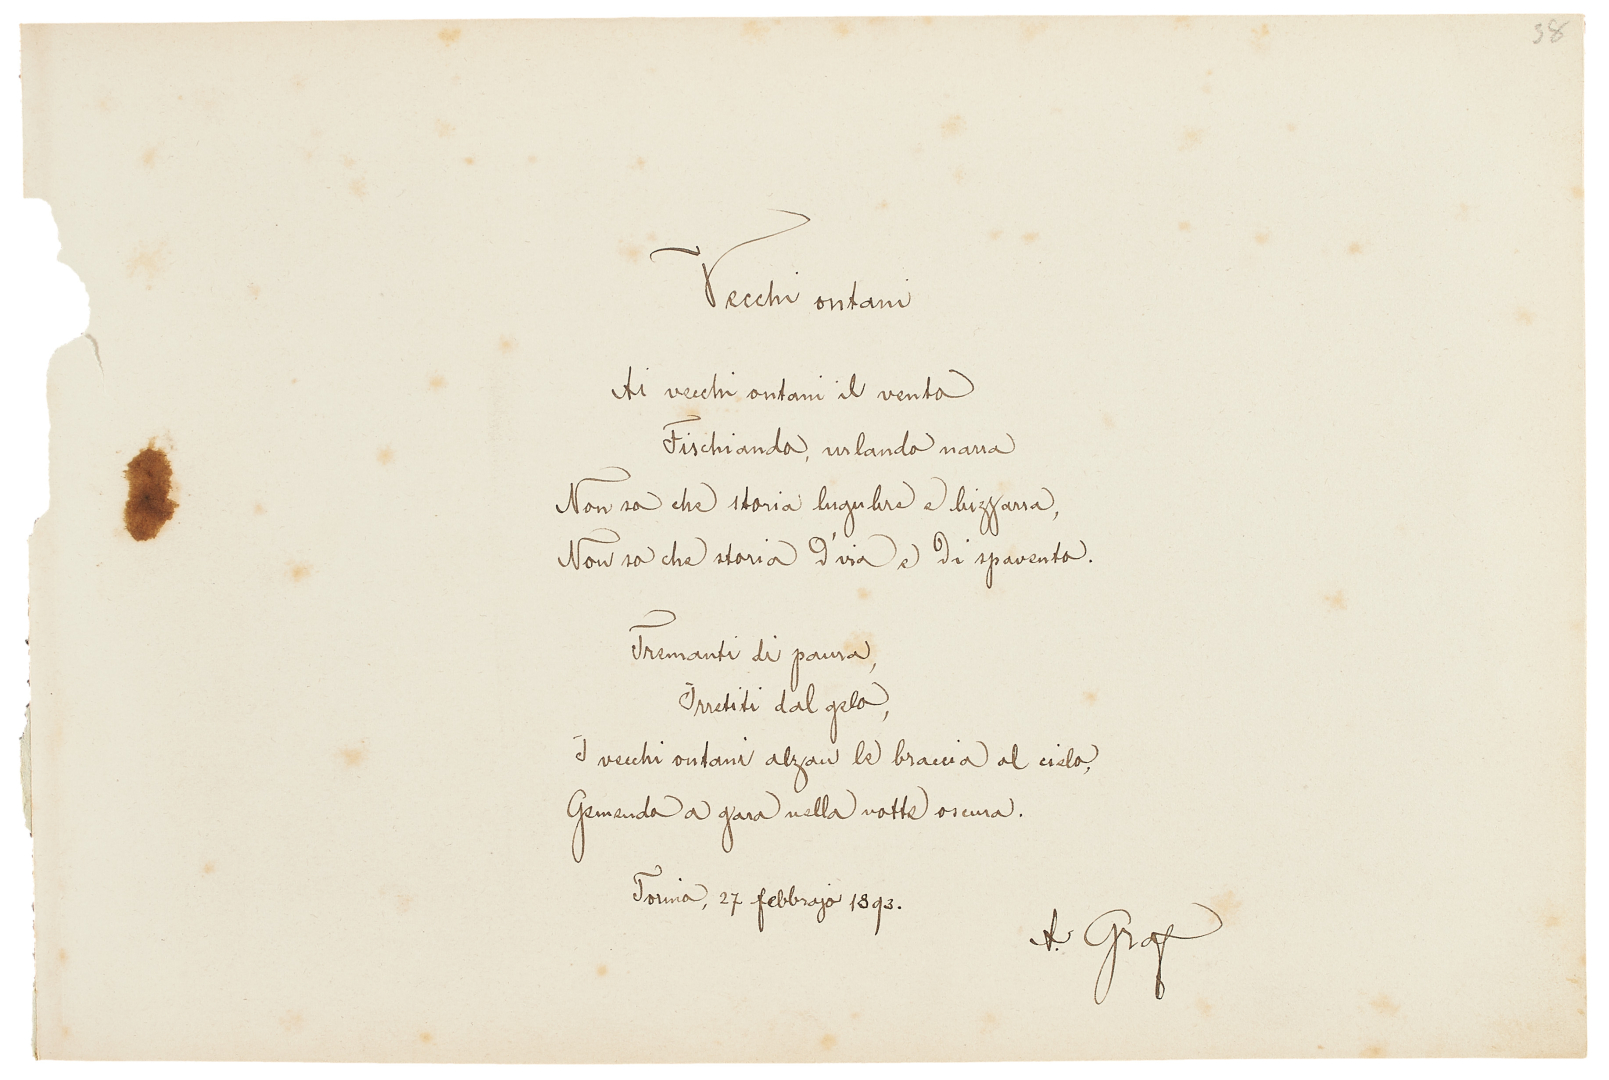 38
Vecchi ontani
Ai vecchi ontani il vento
Fischiando, urlando narra
Non so che storia lugubre e bizzarra,
Non so che storia d'ira e di spavento.
Tremanti di paura,
Irretiti dal gelo,
I vecchi ontani alzan le braccia al cielo,
Gemendo a gara nella notte oscura.
Torino, 27 febbrajo 1893.
A. Graf